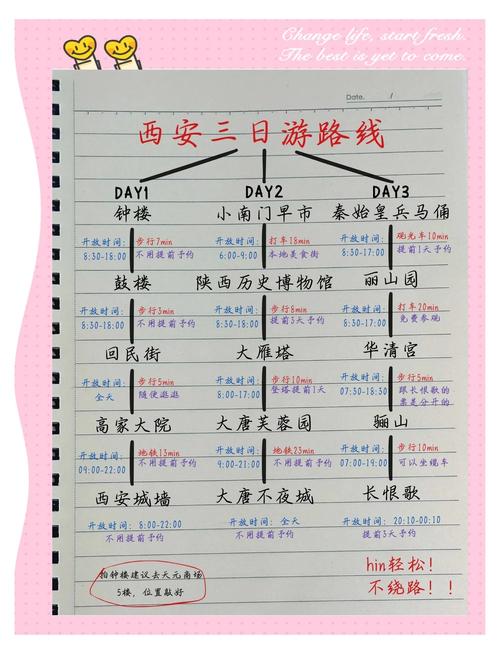 Change life, start fresh.
The best is yet to come.
Date. /
西安三日游路线
DAY1 DAY2 DAY3
钟楼 小南门早市 秦始皇兵马俑
开放时间: 步行7min 开放时间: 打车18min 开放时间: 观光车10min
8:30-18:00 不用提前予约 6:00-9:00 本地美食街 8:30-17:00 提前予约
鼓楼 陕西历史博物馆 丽山园
开放时间: 步行3min 开放时间: 步行8min 开放时间: 打车20min
8:30-18:00 不用提前予约 8:30-18:00 提前3天予约 8:30-17:00 免费参观
回民街 大雁塔 华清宫
开放时间: 步行5min 开放时间: 步行10min 开放时间: 步行5min
全天 随便逛逛 8:00-17:00 登塔提前1天 07:30-18:30 跟长恨歌的
票是分开的
高家大院 大唐芙蓉园 骊山
开放时间: 地铁13min 开放时间: 地铁23min 开放时间: 步行10min
09:00-22:00 不用提前予约 9:00-21:00 不用提前予约 07:00-19:00 可以坐缆车
西安城墙 大唐不夜城 长恨歌
开放时间: 8:00-22:00 开放时间: 全天 开放时间: 20:10-00:10
不用提前予约 不用提前予约 提前予约
拍钟楼建议去天元商场
5楼, 位置敲好
hin轻松!
不绕路!!